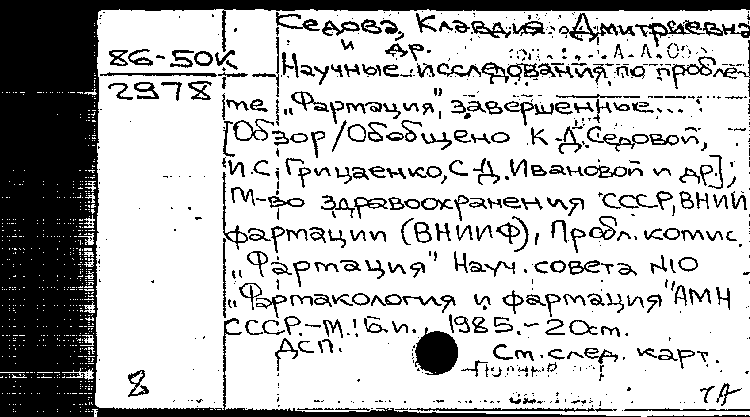 Седова, Клавдия Дмитриевна
и др.
86-50К
2978
Научные исследования по пробле-
ме „Фармация", завершенные...
[Обзор / Обобщено К.Д. Седовой,
И.С. Грицаенко, С.Д. Ивановой и др.];
М-во здравоохранения СССР, ВНИИ
фармации (ВНИИФ), Пробл. комис.
„Фармация" Науч. совета N10
„Фармакология и фармация" АМН
СССР.-М.: Б.и., 1985.- 20см.
ДСП.
См. след. карт.
8